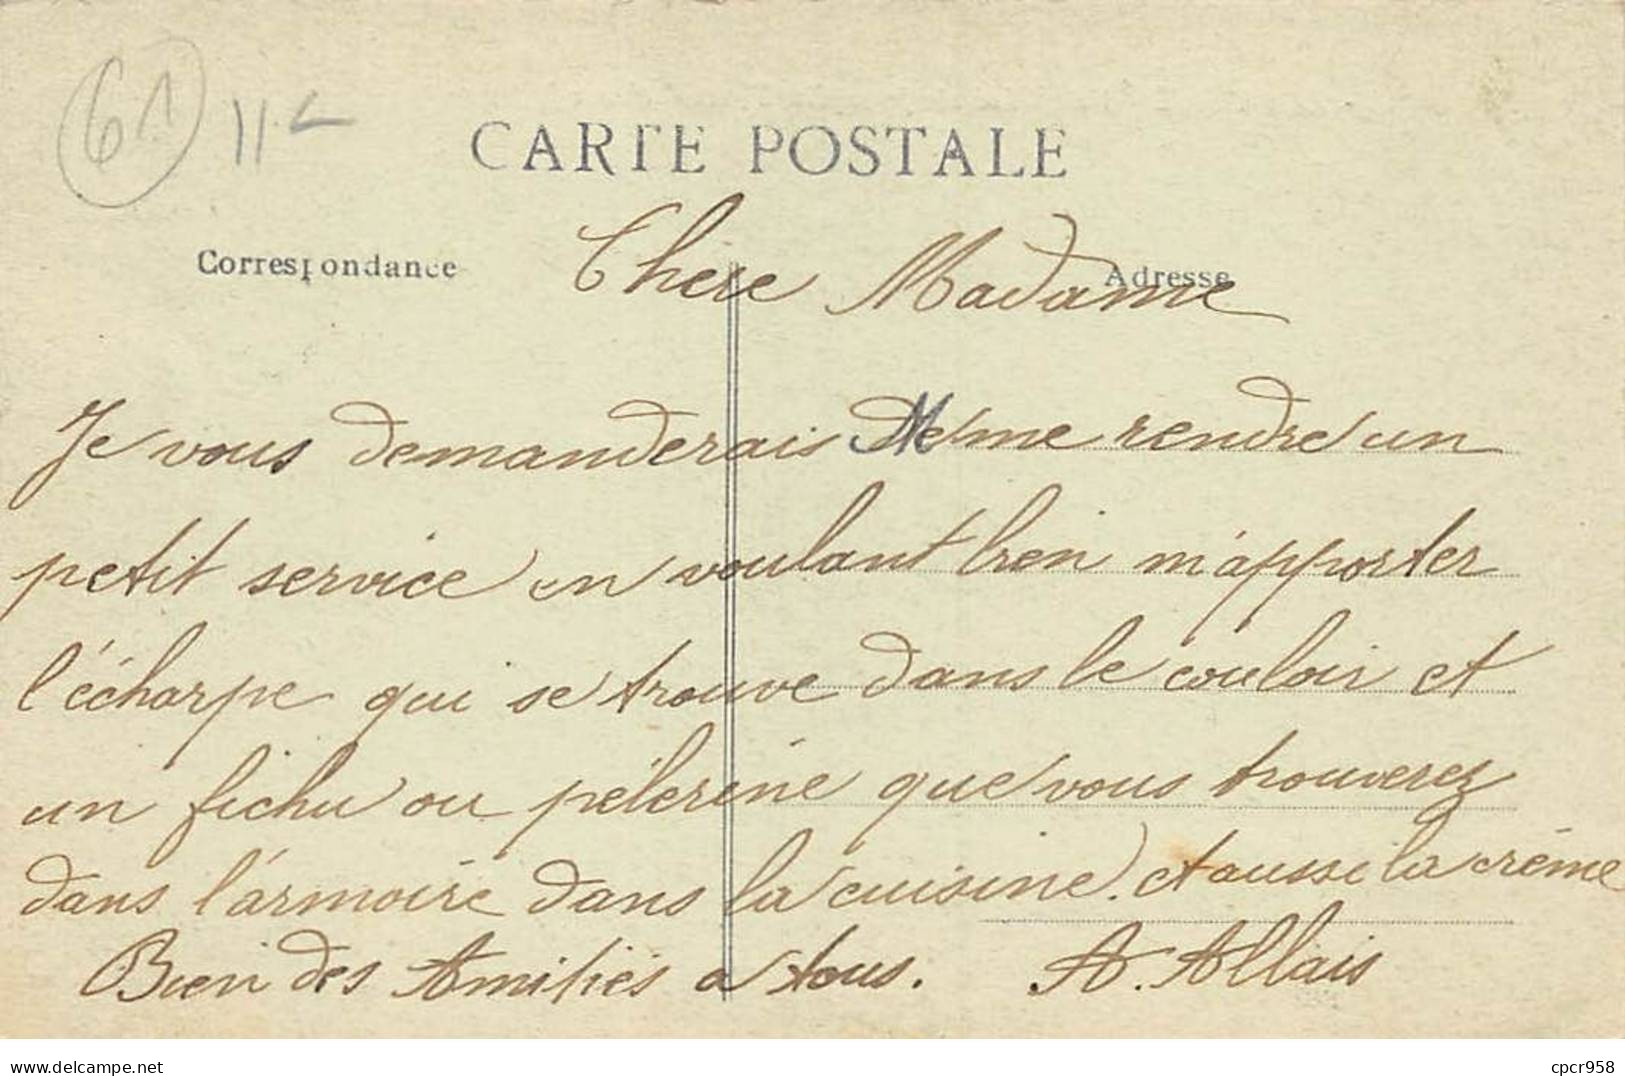 61 11€
CARTE POSTALE
Correspondance
Adresse
Chere Madame
Je vous demanderais de me rendre un
petit service en voulant bien m'apporter
l'écharpe qui se trouve dans le couloir et
un fichu ou pélerine que vous trouverez
dans l'armoire dans la cuisine. et aussi la crème
Bien des Amitiés a tous. A. Allais
delcampe.net
cpcr958